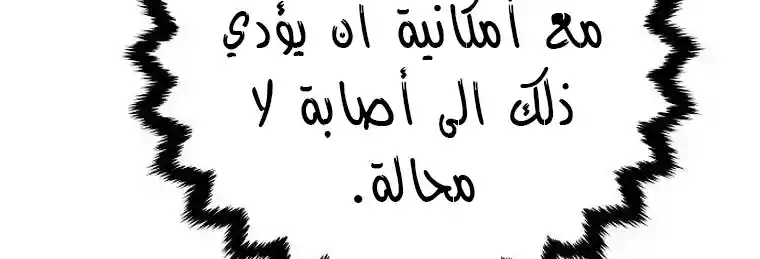 مع أمكانية ان يؤدي
ذلك الى أصابة لا
محالة.